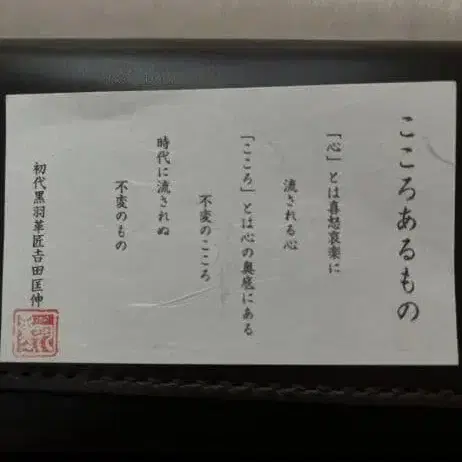 こころあるもの
「心」とは喜怒哀楽に
流される心
「こころ」とは心の奥底にある
不変のこころ
時代に流されぬ
不変のもの
初代黒羽革匠𠮷田匡伸